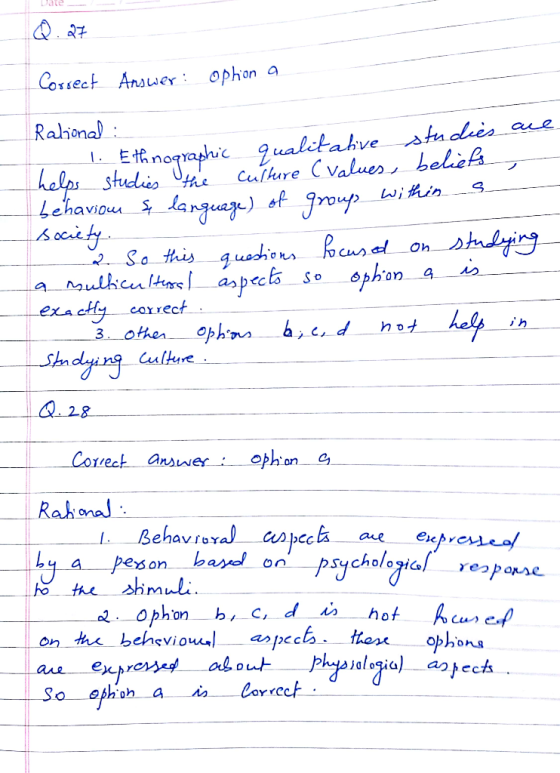 Date
Q. 27
Correct Answer: option a
Rational:
1. Ethnographic qualitative studies are
helps studies the culture (values, beliefs,
behaviour & language) of group within a
society.
2. So this questions focused on studying
a multicultural aspects so option a is
exactly correct.
3. other options b, c, d not help in
studying culture.
Q. 28
Correct answer: option a
Rational:
1. Behavioral aspects are expressed
by a person based on psychological response
to the stimuli.
2. Option b, c, d is not focused
on the behavioural aspects. these options
are expressed about physiological aspects.
So option a is Correct.